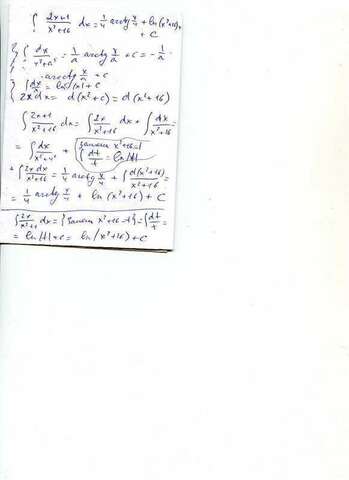 ∫ (2x+1)/(x²+16) dx = 1/4 arctg x/4 + ln(x²+16) + c
{∫ dx/(x²+a²) = 1/a arctg x/a + c = -1/a ·
· arcctg x/a + c
} ∫ dx/x = ln|x| + c
{2x dx = d(x²+c) = d(x²+16)
∫ (2x+1)/(x²+16) dx = ∫ 2x/(x²+16) dx + ∫ dx/(x²+16) =
= ∫ dx/(x²+4²) + {замен x²+16=t ∫ dt/t = ln|t|}
+ ∫ 2x dx/(x²+16) = 1/4 arctg x/4 + ∫ d(x²+16)/(x²+16) =
= 1/4 arctg x/4 + ln(x²+16) + C
∫ 2x/(x²+1 dx = {замен x²+16=t} = ∫ dt/t =
= ln|t| + c = ln(x²+16) + C